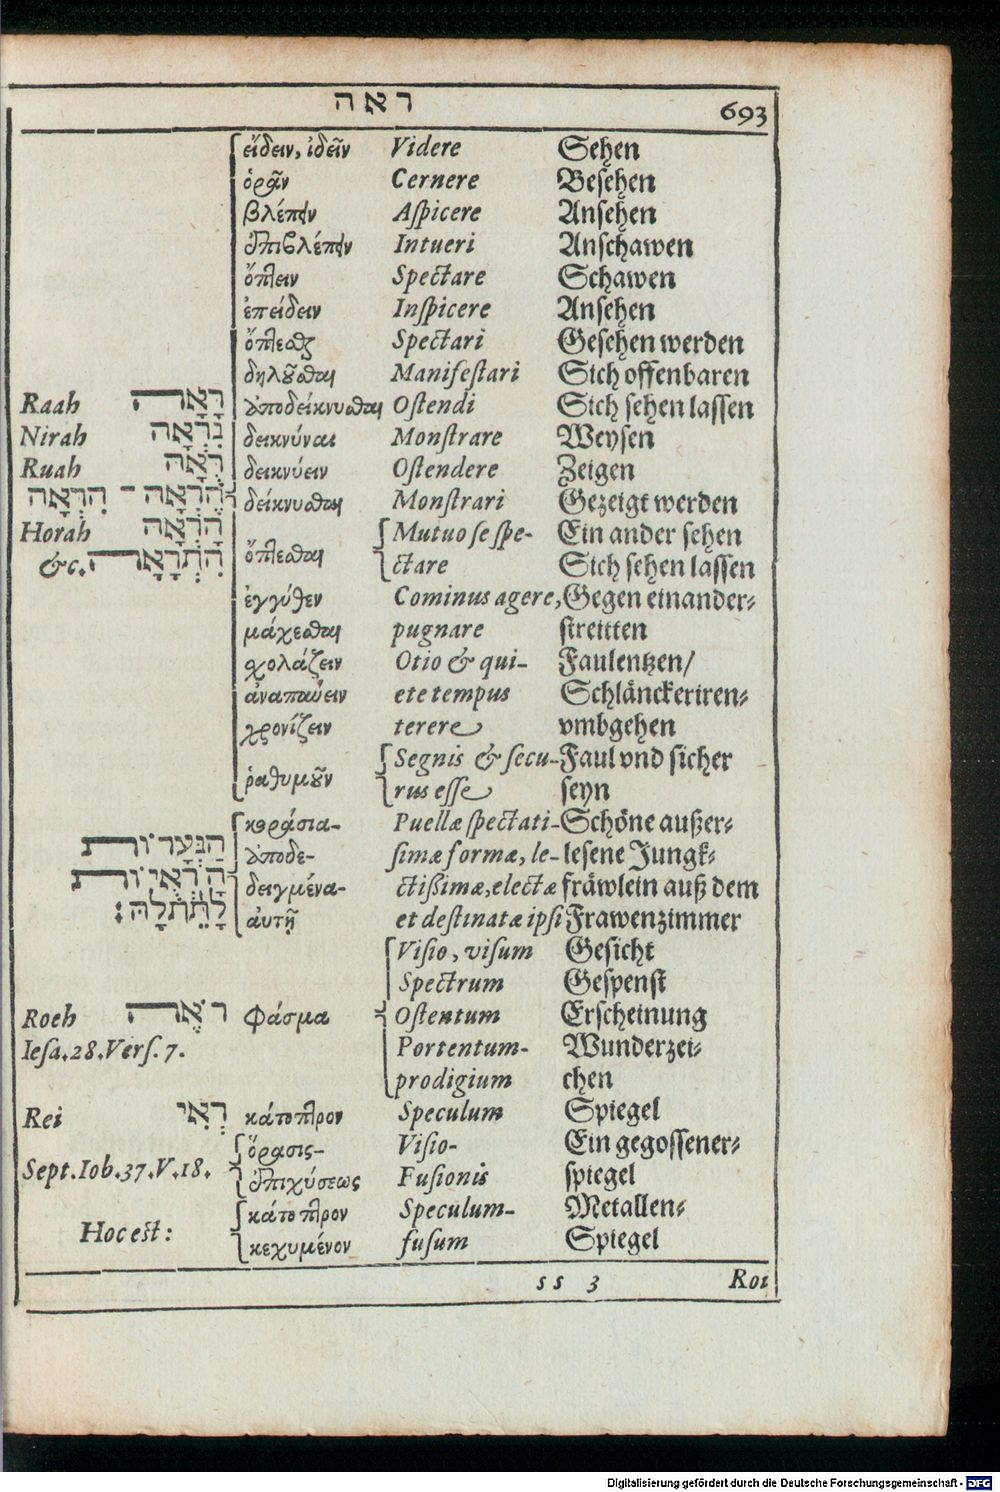 ראה 693
εἴδειν, ἰδεῖν Videre Sehen
ὁρᾶν Cernere Besehen
βλέπειν Aſpicere Ansehen
ἐπιβλέπειν Intueri Anschawen
ὄπτειν Spectare Schawen
ἐπείδειν Inſpicere Ansehen
ὄπτεσθαι Spectari Gesehen werden
δηλοῦσθαι Manifeſtari Sich offenbaren
Raah רָאָה ἀποδείκνυσθαι Oſtendi Sich sehen lassen
Nirah נִרְאָה δεικνύναι Monſtrare Weysen
Ruah רֻאָה δεικνύειν Oſtendere Zeigen
הֶרְאָה - הִרְאָה δείκνυσθαι Monſtrari Gezeigt werden
Horah הָרְאָה Mutuo ſe ſpe- Ein ander sehen
&c. הִתְרָאָה ὄπτεσθαι ctare Sich sehen lassen
ἐγγύθεν Cominus agere, Gegen einander-
μάχεσθαι pugnare streitten
σχολάζειν Otio & qui- Faulentzen/
ἀναπαύειν ete tempus Schlänckeriren-
χρονίζειν terere vmbgehen
Segnis & ſecu- Faul vnd sicher
ῥαθυμοῦν rius eſſe seyn
κοράσια- Puellæ ſpectati- Schöne außer-
הַנְּעָרוֹת ἀποδε- ſimæ formæ, le- lesene Jungk-
הָרְאֻיוֹת δειγμένα- ctißimæ, electæ fräwlein auß dem
לָתֶת־לָהּ׃ αὐτῇ et deſtinatæ ipſi Frawenzimmer
Viſio, viſum Gesicht
Spectrum Gespenst
Roeh רֹאֶה Φάσμα Oſtentum Erscheinung
Ieſa. 28. Verſ. 7. Portentum- Wunderzei-
prodigium chen
Rei רְאִי κάτοπτρον Speculum Spiegel
ὅρασις- Viſio- Ein gegossener-
Sept. Iob. 37. V. 18. ἐπιχύσεως Fuſionis spiegel
κάτοπτρον Speculum- Metallen-
Hoc eſt: κεχυμένον fuſum Spiegel
ss 3 Roi
Digitalisierung gefördert durch die Deutsche Forschungsgemeinschaft - DFG